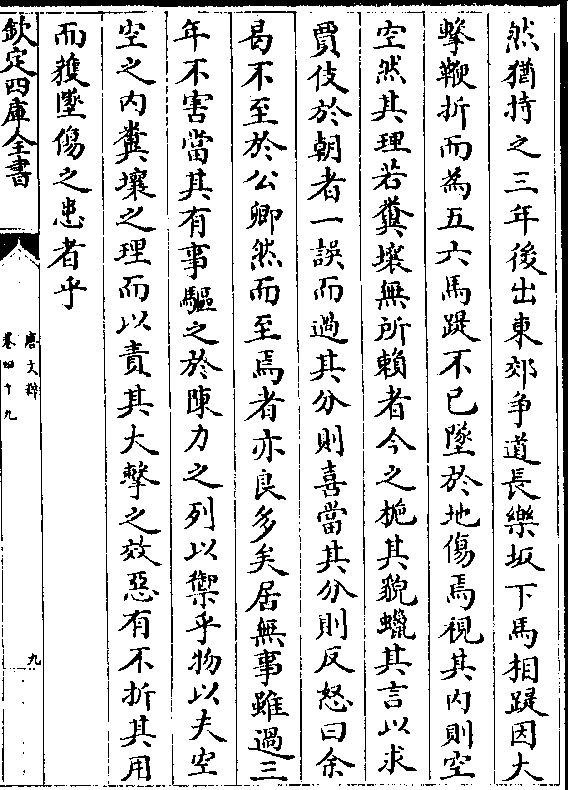 然猶持之三年後出東郊争道長樂坂下馬相踶因大
擊鞭折而為五六馬踶不已墜於地傷焉視其内則空
空然其理若糞壤無所賴者今之栀其貌蠟其言以求
賈伎於朝者一誤而過其分則喜當其分則反怒曰余
曷不至於公卿然而至焉者亦良多矣居無事雖過三
年不害當其有事驅之於陳力之列以禦乎物以夫空
空之内糞壤之理而以責其大擊之效惡有不折其用
而獲墜傷之患者乎
欽定四庫全書
唐文粹
卷四十九
九